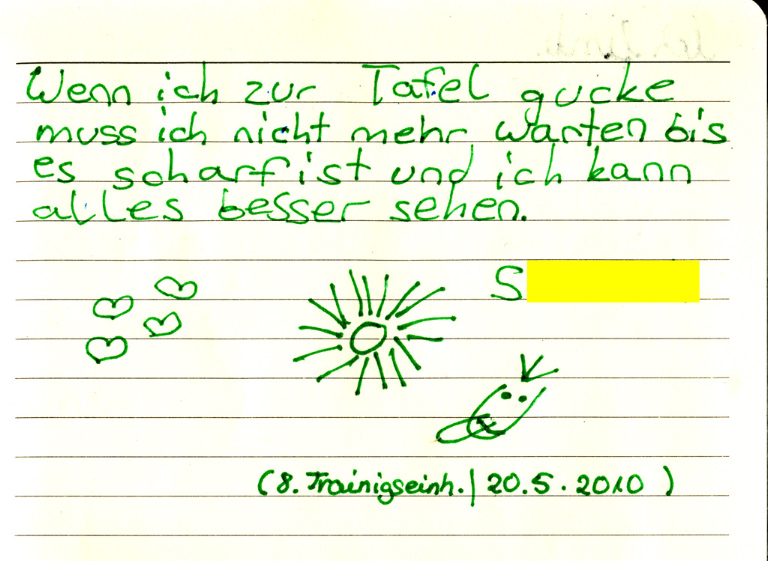 Wenn ich zur Tafel gucke
muss ich nicht mehr warten bis
es scharf ist und ich kann
alles besser sehen.
S
(8. Trainigseinh. | 20.5.2010)